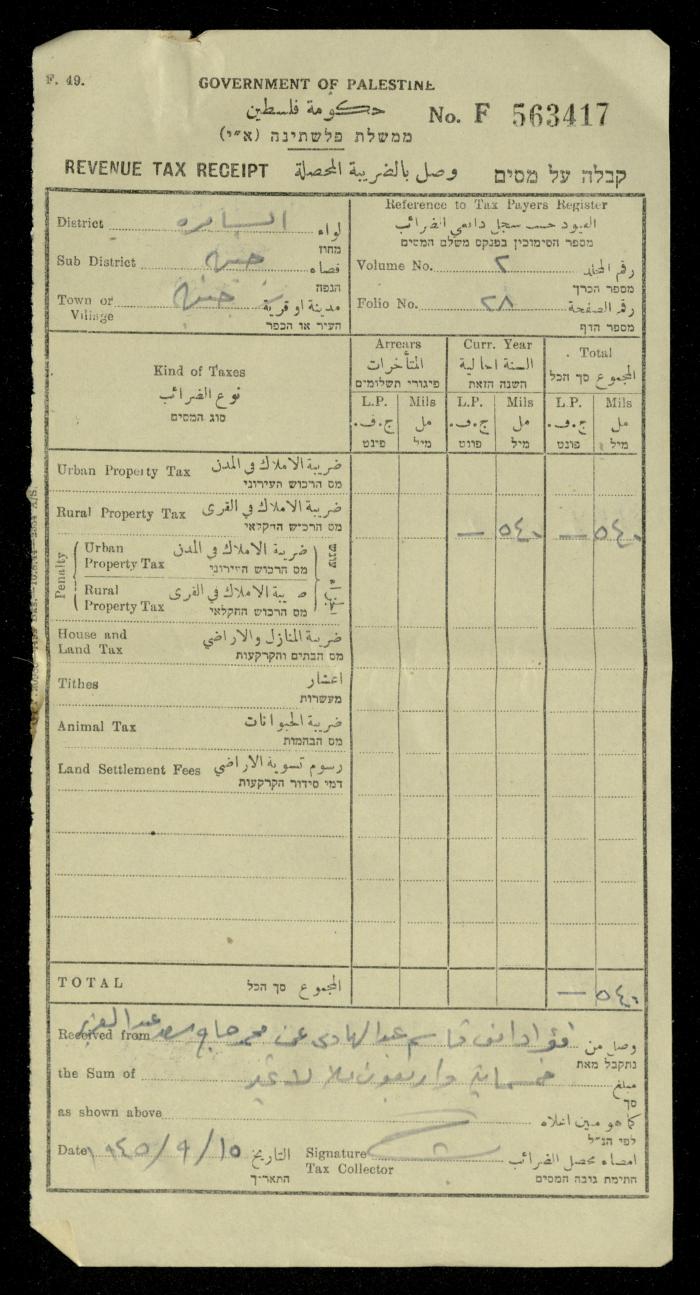 F. 49.
GOVERNMENT OF PALESTINE
حكومة فلسطين
No. F 563417
ממשלת פלשתינה (א״י)
REVENUE TAX RECEIPT وصل بالضريبة المحصلة קבלה על מסים
District السامره لواء
מחוז
Sub District جنين قضاء
הנפה
Town or Village جنين مدينة او قرية
העיר או הכפר
Reference to Tax Payers Register
القيود حسب سجل دافعي الضرائب
מספר הסימוכין בפנקס משלם המסים
Volume No. ٢ رقم المجلد
מספר הכרך
Folio No. ٢٨ رقم الصفحة
מספר הדף
Kind of Taxes
نوع الضرائب
סוג המסים
Arrears
المتأخرات
פיגורי תשלומים
Curr. Year
السنة الحالية
השנה הזאת
Total
المجموع סך הכל
L.P. Mils L.P. Mils L.P. Mils
ج.ف. مل ج.ف. مل ج.ف. مل
פונט מיל פונט מיל פונט מיל
Urban Property Tax ضريبة الاملاك في المدن
מס הרכוש העירוני
Rural Property Tax ضريبة الاملاك في القرى — ٥٤٠ — ٥٤٠
מס הרכוש החקלאי
Penalty
Urban Property Tax ضريبة الاملاك في المدن
מס הרכוש העירוני
Rural Property Tax ضريبة الاملاك في القرى
מס הרכוש החקלאי
الجزاء עונש
House and Land Tax ضريبة المنازل والاراضي
מס הבתים והקרקעות
Tithes اعشار
מעשרות
Animal Tax ضريبة الحيوانات
מס הבהמות
Land Settlement Fees رسوم تسوية الاراضي
דמי סידור הקרקעות
TOTAL المجموع סך הכל — ٥٤٠
Received from فؤاد قاسم عبد الهادي عن محمد حاج اسعد عبد العزيز وصل من
נתקבל מאת
the Sum of خمسماية واربعون ملا لا غير مبلغ
סך
as shown above كما هو مبين اعلاه
לפי הנ״ל
Date ١٩٤٥/٩/١٥ التاريخ
התאריך
Signature Tax Collector امضاء محصل الضرائب
חתימת גובה המסים